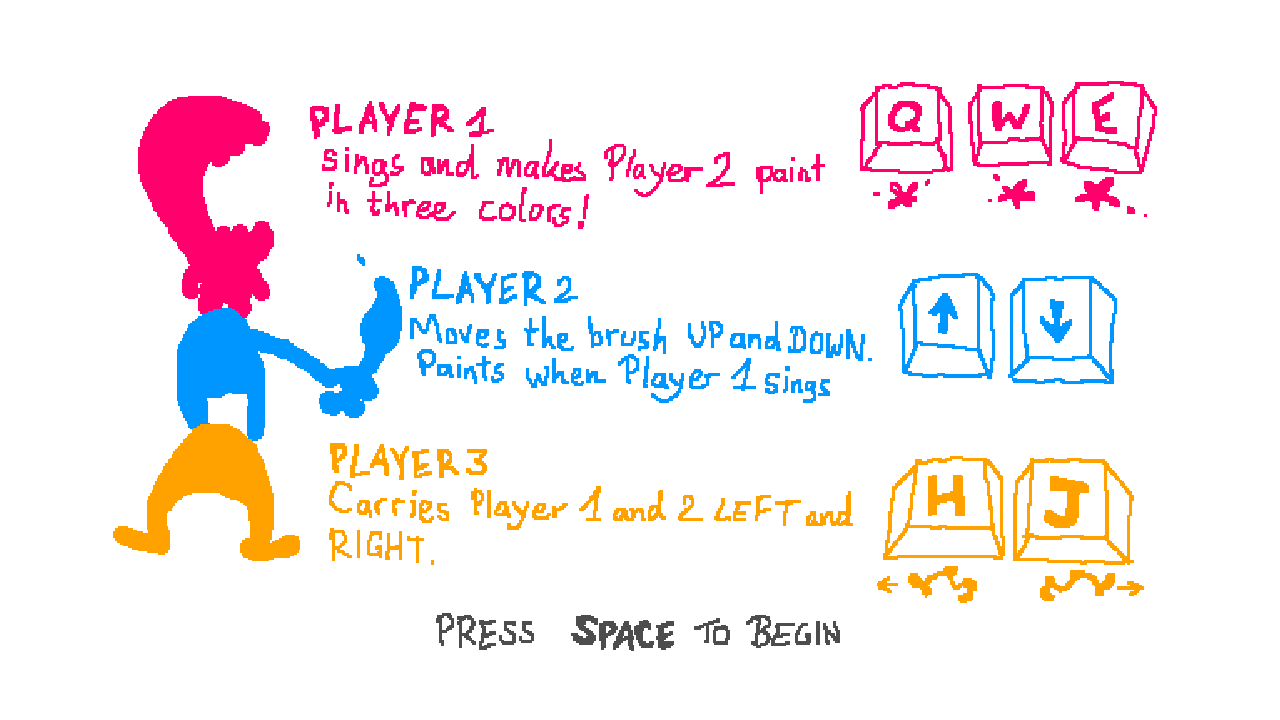 PLAYER 1
sings and makes Player 2 paint
in three colors!
Q W E
PLAYER 2
Moves the brush UP and DOWN.
Paints when Player 1 sings
↑ ↓
PLAYER 3
Carries Player 1 and 2 LEFT and
RIGHT.
H J
← →
PRESS SPACE TO BEGIN